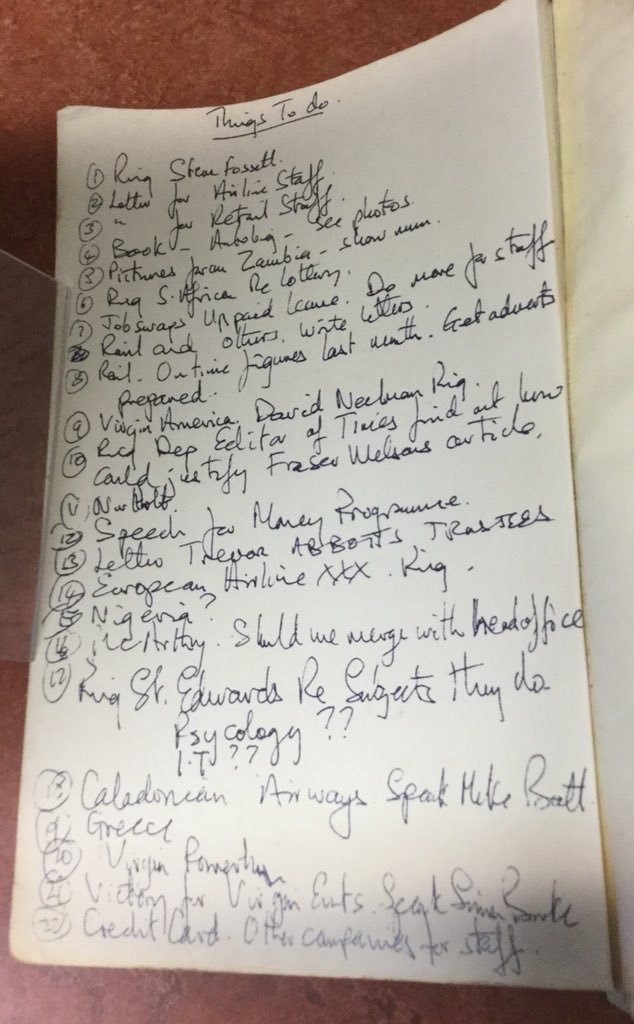 Things To do.
① Ring Steve Fossett.
② Letter for Airline Staff.
③ " for Retail Staff.
④ Book - Autobiog - see photos.
⑤ Pictures from Zambia - show mum.
⑥ Ring S. Africa Re Lottery.
⑦ Jobswaps Unpaid Leave. Do more for staff
Rail and others. Write letters.
⑧ Rail. Ontime figures last month. Get adverts
prepared.
⑨ Virgin America. David Ring.
⑩ Ring Dep Editor of Times find out how
could justify Fraser article.
11
⑫ Speech for Money Programme.
⑬ Letter Trevor ABBOTTS TRASTEES
⑭ European Airline XXX. Ring.
⑮ Nigeria?
⑯ McCarthy. Should we merge with head office
⑰ Ring St. Edwards Re Subjects they do
Psycology ??
I.T ??
⑱ Caladonean Airways Speak Mike Batt
⑲ Greece
⑳ Virgin
㉑ for Virgin Simon
㉒ Credit Card. Other companies for staff.